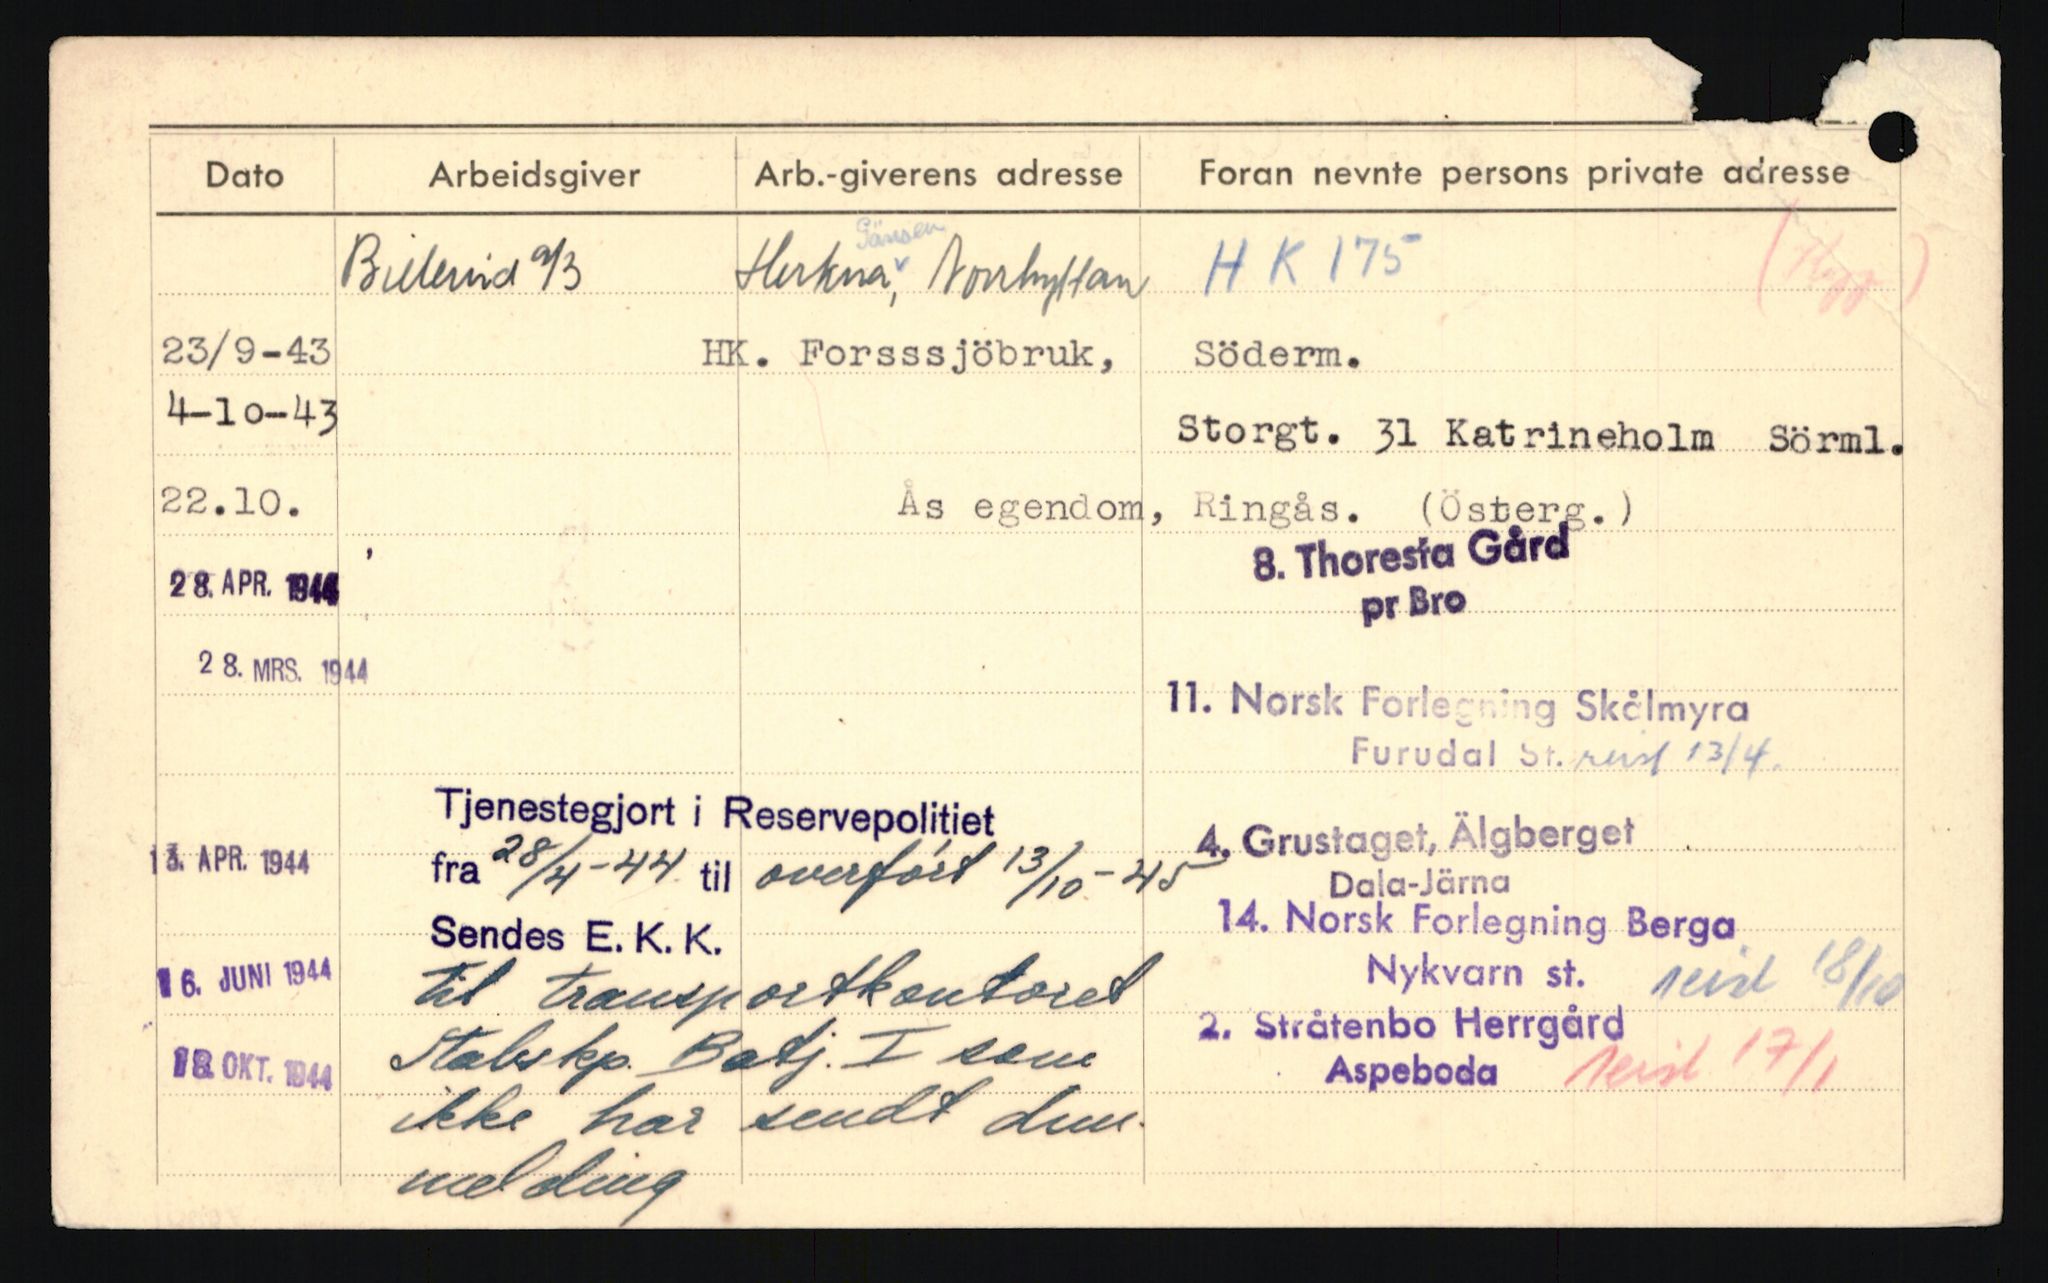 Dato Arbeidsgiver Arb.-giverens adresse Foran nevnte persons private adresse
Billerud a/B Herkna, Norrhyttan HK 175
23/9-43 HK. Forsssjöbruk, Söderm.
4-10-43 Storgt. 31 Katrineholm Sörml.
22.10. Ås egendom, Ringås. (Österg.)
28. APR. 1944 8. Thoresta Gård
pr Bro
28. MRS. 1944 11. Norsk Forlegning Skålmyra
Furudal St. reist 13/4.
Tjenestegjort i Reservepolitiet
13. APR. 1944 4. Grustaget, Älgberget
fra 28/4-44 til overført 13/10-45
Dala-Järna
Sendes E. K. K. 14. Norsk Forlegning Berga
16. JUNI 1944 til transportkontoret Nykvarn st. reist 18/10
2. Stråtenbo Herrgård
18. OKT. 1944 Stabskp. Batj. I som Aspeboda reist 17/1
ikke har sendt dim.
melding